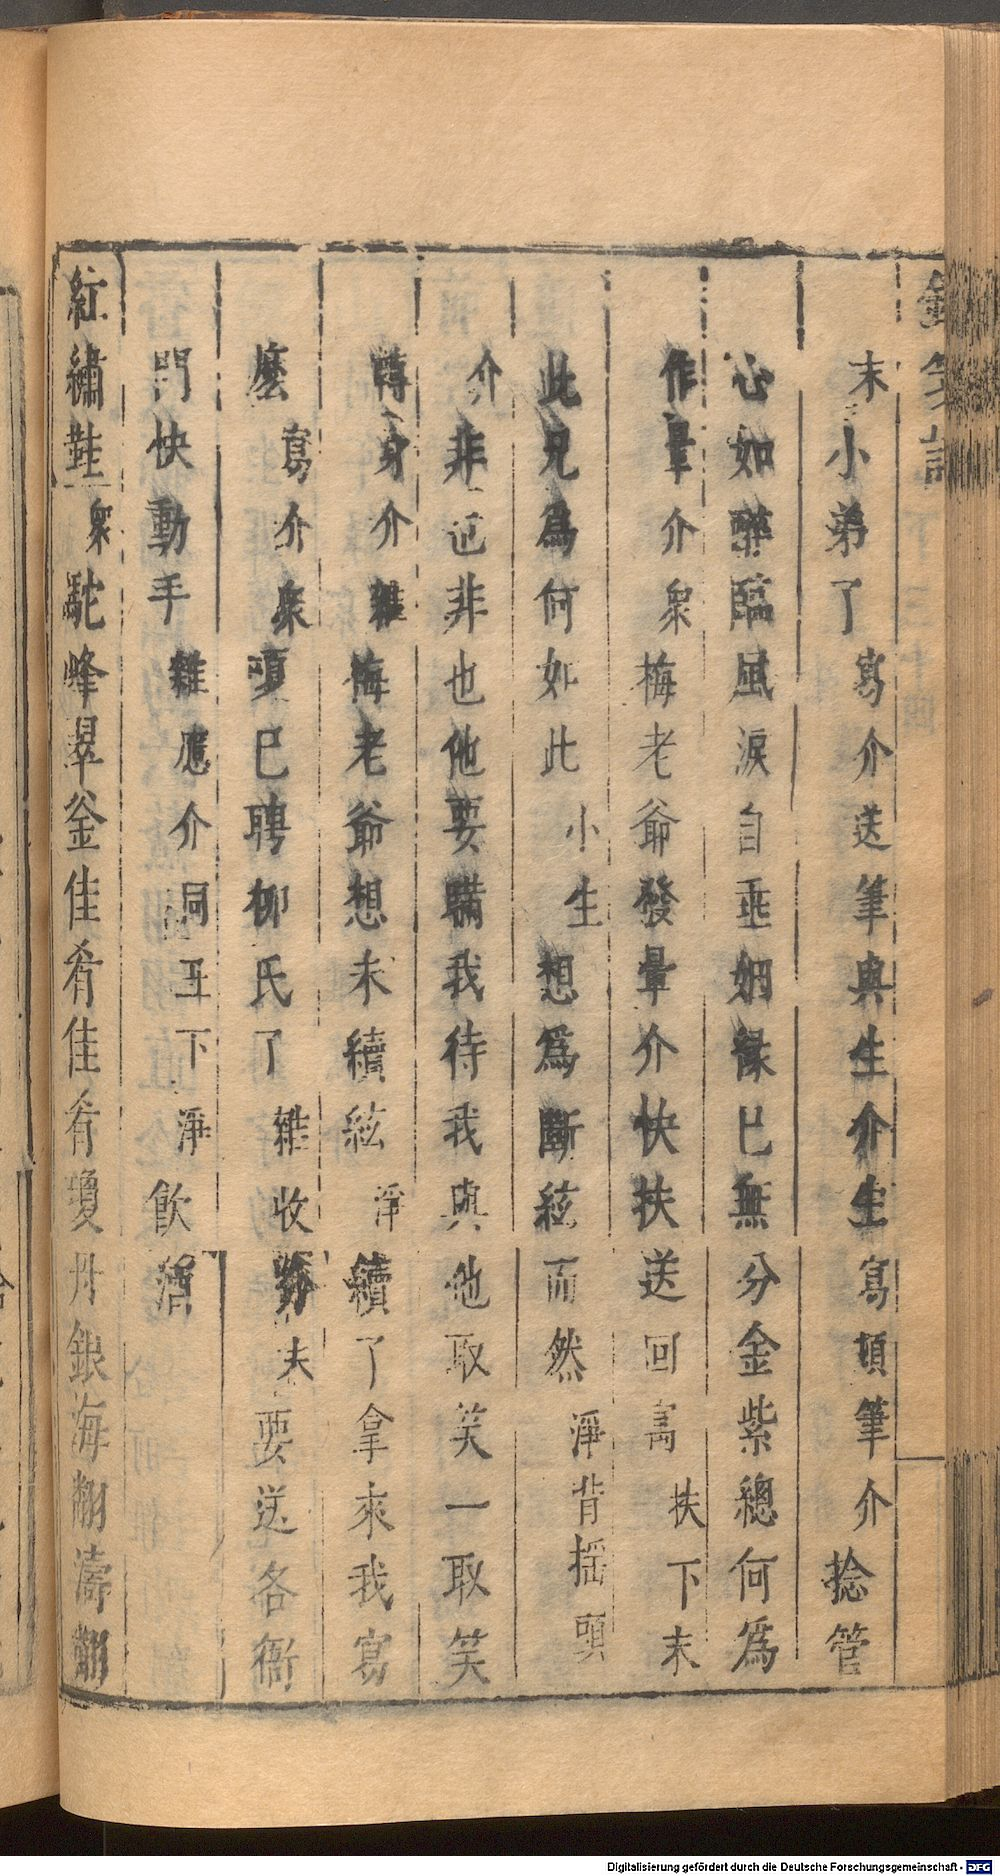 末小弟了寫介送筆與生介生寫頓筆介捻管
心如醉臨風淚自垂姻緣已無分金紫總何爲
作暈介衆梅老爺發暈介快扶送回寓扶下末
此兄爲何如此小生想爲斷絃而然淨背搖頭
介非也非也他要瞞我待我與他取笑一取笑
轉身介雜梅老爺想未續絃淨續了拿來我寫
麼寫介衆項已聘柳氏了雜收夫要送各衙
門快動手雜應介同生下淨飲酒
紅繡鞋衆駝峰翠釜佳肴佳肴瓊丹銀海翻濤翻
Digitalisierung gefördert durch die Deutsche Forschungsgemeinschaft - DFG